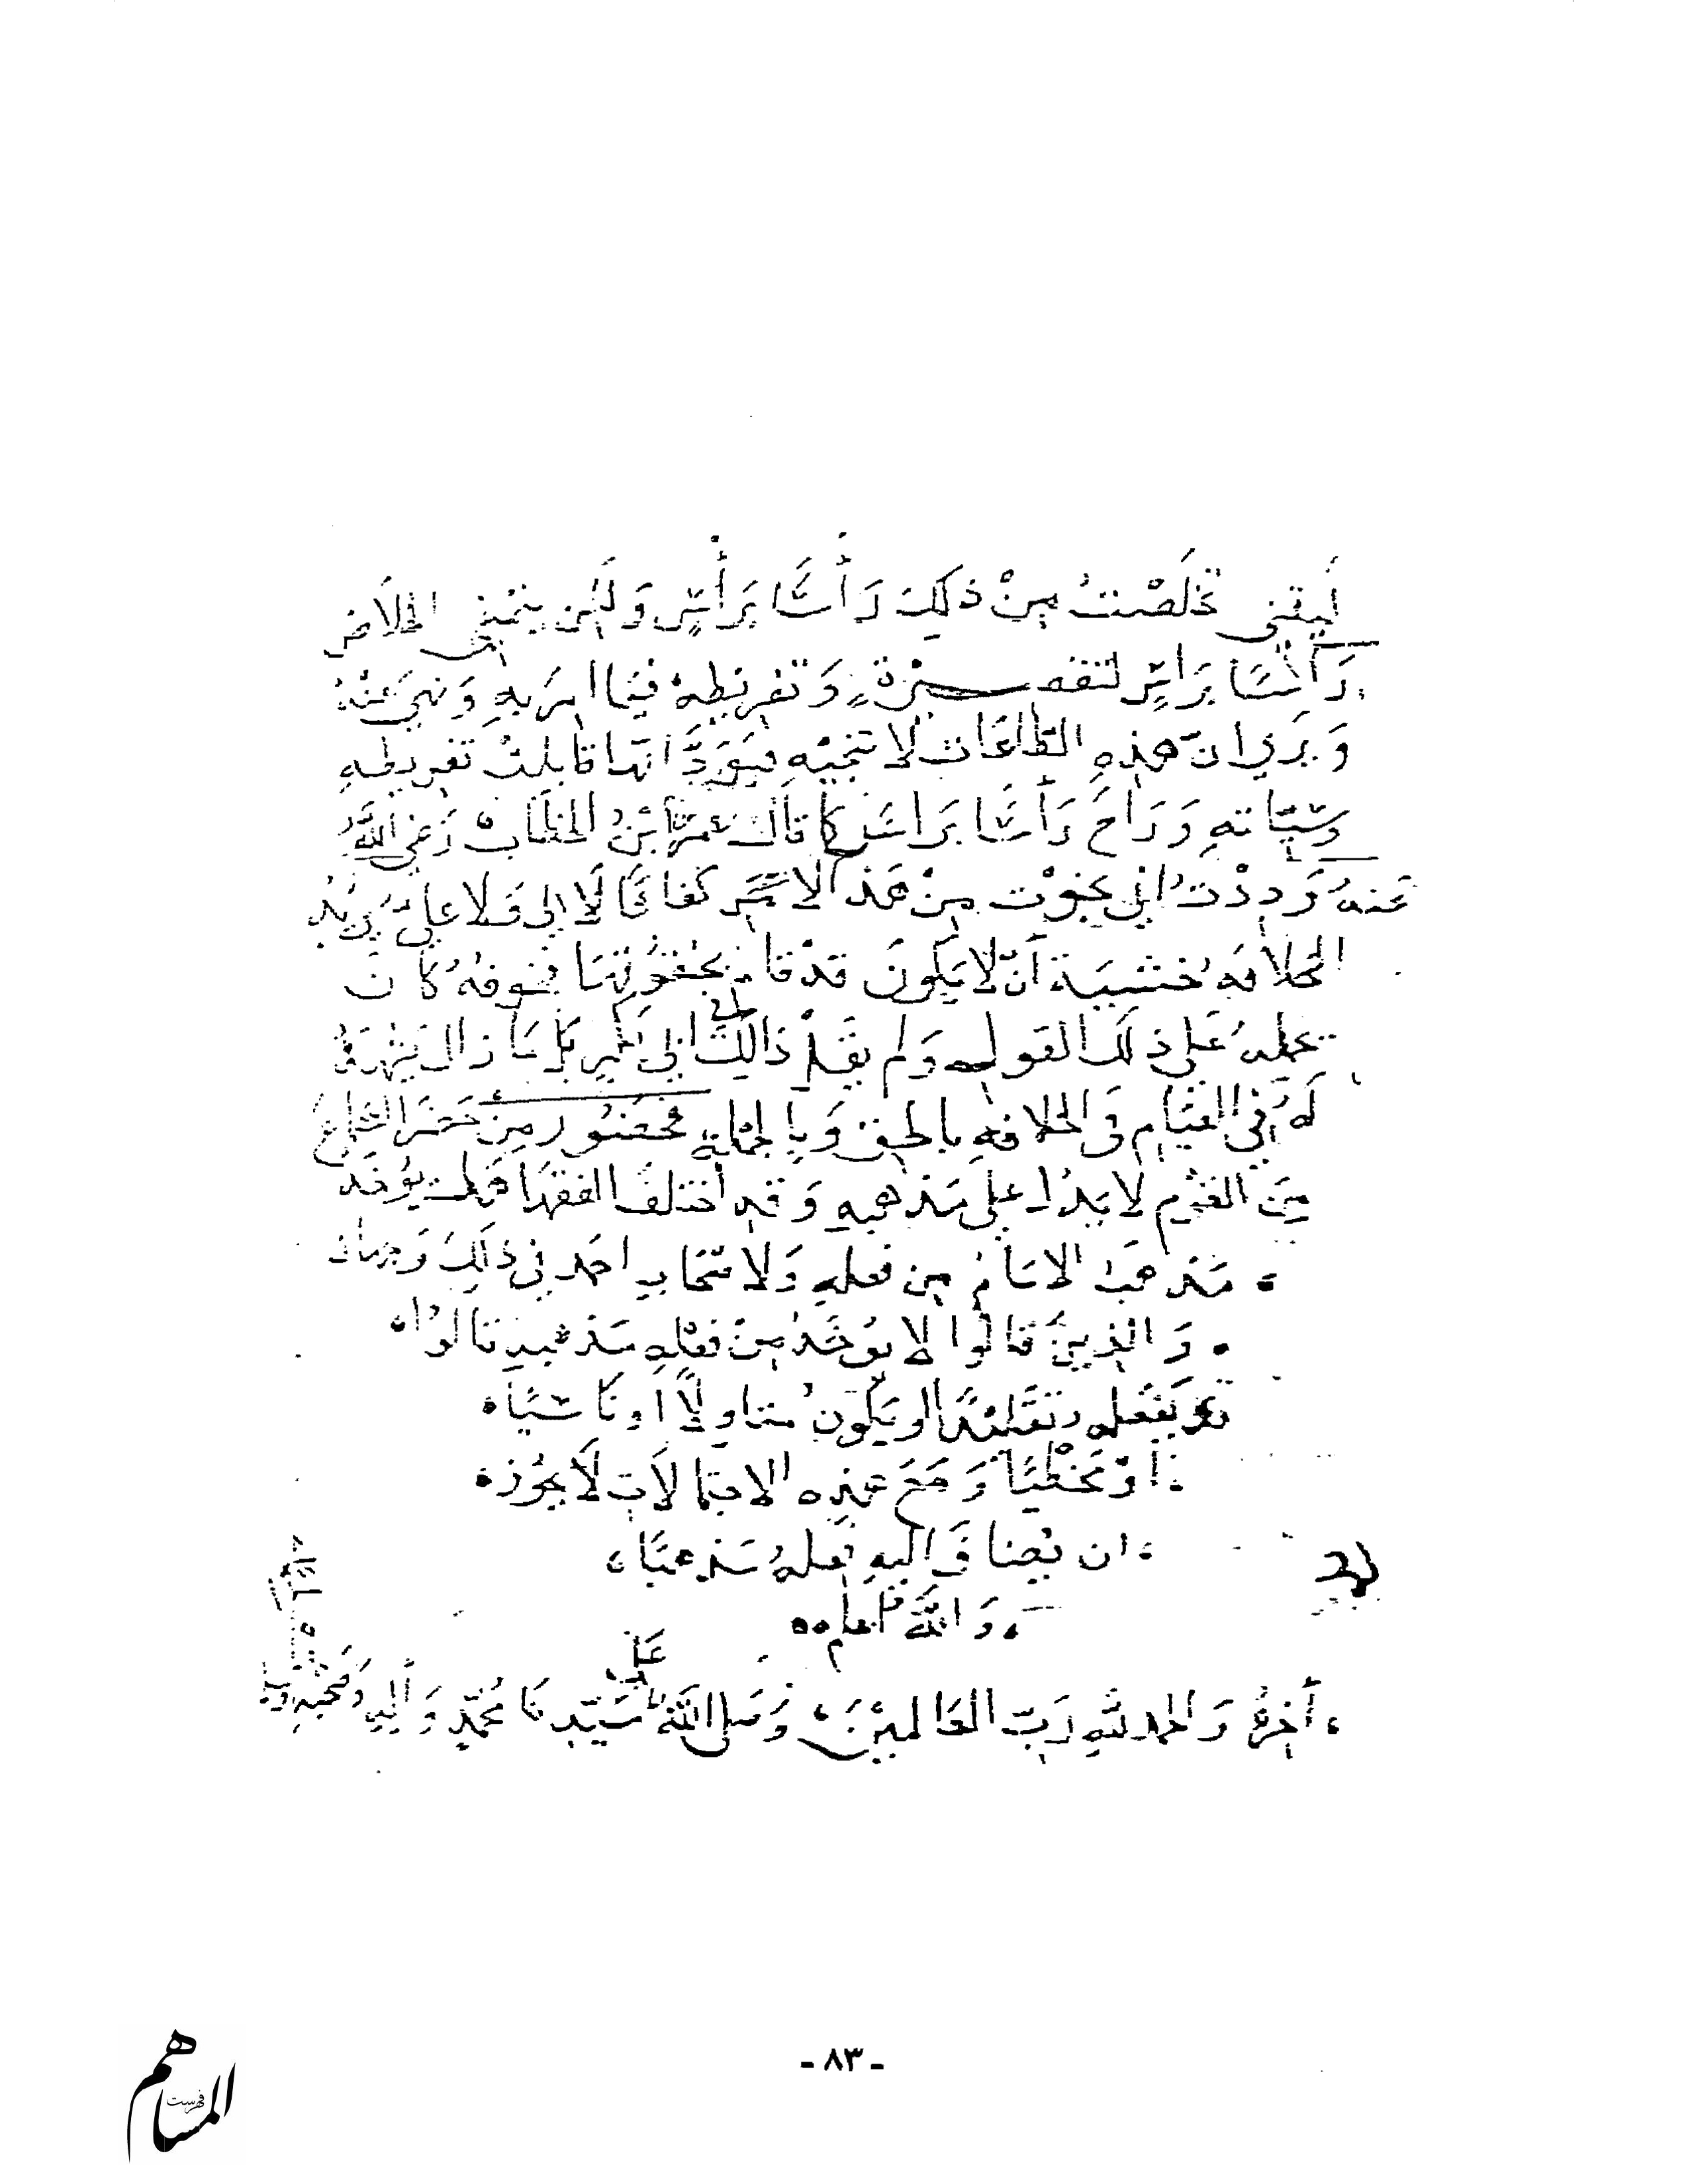 ليتني تخلصت من ذلك رأسا برأس ولمن يتمنى الخلاص
رأسا براس لتقصيرة وتفريطه فيما امر به ونهي عنه
ويري ان هذه الطاعات لا تنجيه فيود انها قابلت تفريطه
وسيّاته وراح رأسا براس كما قال عمر ابن الخطاب رضي الله
عنه وددت اني نجوت من هذ الامر كفافا لا لي ولا علي يريد
الخلافه خشية أن لا يكون قد قام بحقوقها فخوفه كان
يحمله على ذلك القول ولم يقل ذالك ابي بكر بل ما زال يشهد
له في القيام في الخلافه بالحق وبالجملة فحضور من حضر السماع
من القوم لا يدل على مذهبه وقد أختلف الفقها هل يؤخذ
مذهب الامام من فعله ولاصحاب احمد في ذلك وجهان
والذين قالوا لا يؤخذ من فعله مذهبه قالوا
قد يفعله تقليدًا او يكون متاولًا او ناسيًا
أو مخطيًا ومع هذه الاحتمالات لا يجوز
ان يضاف اليه فعله مذهبًا
والله أعلم
على
أخره والحمد لله رب العالمين وصلى الله سيدنا محمد وأله وصحبه وسلم
- ٨٣ -
المساهم
فهرست